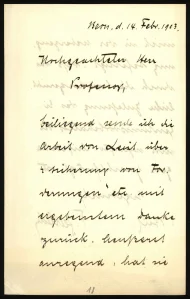 Bern, d. 14. Febr. 1913.
Hochgeachteter Herr
Professor,
beiliegend sende ich die
Arbeit von Leist über
"Sicherung von For-
derungen" etc mit
ergebenstem Danke
zurück. Äusserst
anregend, hat sie